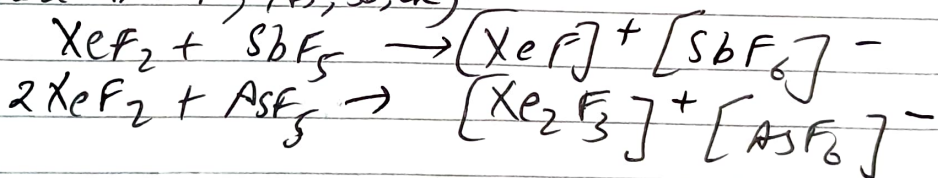 XeF₂ + SbF₅ → [XeF]⁺ [SbF₆]⁻
2XeF₂ + AsF₅ → [Xe₂F₃]⁺ [AsF₆]⁻